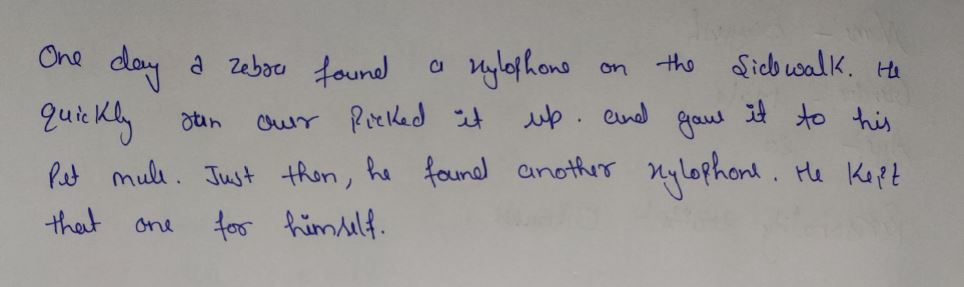 One day a zebra found a xylophone on the Sidewalk. He
quickly ran over Picked it up. and gave it to his
Pet mule. Just then, he found another xylophone. He Kept
that one for himself.